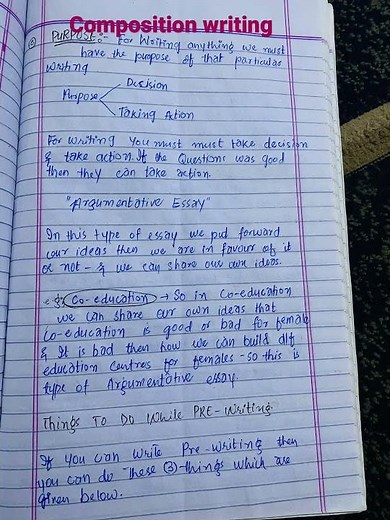 Composition writing
① PURPOSE:- For writing anything we must
have the purpose of that particular
writing
Decision
Purpose
Taking Action
For writing you must must take decision
& take action. If the Questions was good
then they can take action.
"Argumentative Essay"
In this type of essay we put forward
our ideas then we are in favour of it
or not - & we can share our own ideas.
e.g. Co-education → So in Co-education
we can share our own ideas that
Co-education is good or bad for female
& It is bad then how we can build dif
education centres for females - so this is
type of Argumentative essay
Things TO DO While PRE-Writing
If you can write Pre-writing then
you can do these (3)-things which are
given below.